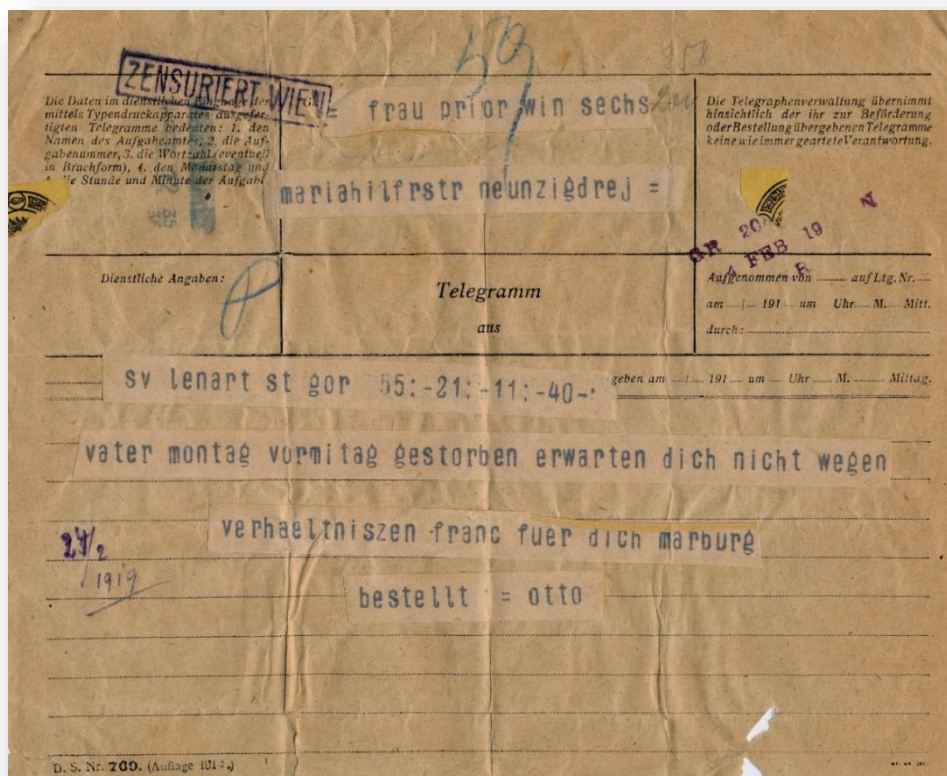 ZENSURIERT WIEN
Die Daten im dienstlichen Eingange der
mittels Typendruckapparates ausgefer-
tigten Telegramme bedeuten: 1. den
Namen des Aufgabeamtes, 2. die Auf-
gabenummer, 3. die Wortzahl (eventuell
in Bruchform), 4. den Monatstag und
die Stunde und Minute der Aufgabe
frau prior win sechs
mariahilfrstr neunzigdrej =
Die Telegraphenverwaltung übernimmt
hinsichtlich der ihr zur Beförderung
oder Bestellung übergebenen Telegramme
keine wie immer geartete Verantwortung.
GR 20
4 FEB 19 N
R
Dienstliche Angaben:
Telegramm
aus
Aufgenommen von auf Ltg. Nr.
am 191 um Uhr M. Mitt.
durch:
sv lenart st gor 55:-21:-11:-40-:
geben am 191 um Uhr M. Mittag.
vater montag vormitag gestorben erwarten dich nicht wegen
verhaeltniszen franc fuer dich marburg
bestellt = otto
24/2
1919
D. S. Nr. 769. (Auflage 191